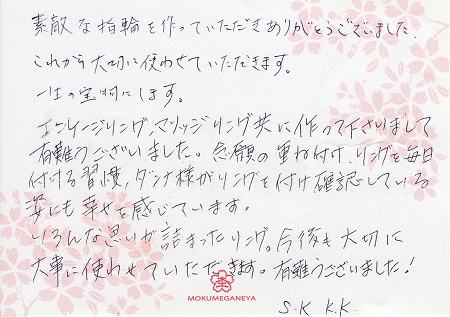 素敵な指輪を作っていただきありがとうございました.
これから大切に使わせていただきます。
一生の宝物にします。
エンゲージリング、マリッジリング共に作って下さいまして
有難うございました。念願の重ね付け、リングを毎日
付ける習慣、ダンナ様がリングを付け確認している
姿にも幸せを感じています。
いろんな思いが詰まったリング。今後も大切に
大事に使わせていただきます。有難うございました!
MOKUMEGANEYA
S.K K.K.